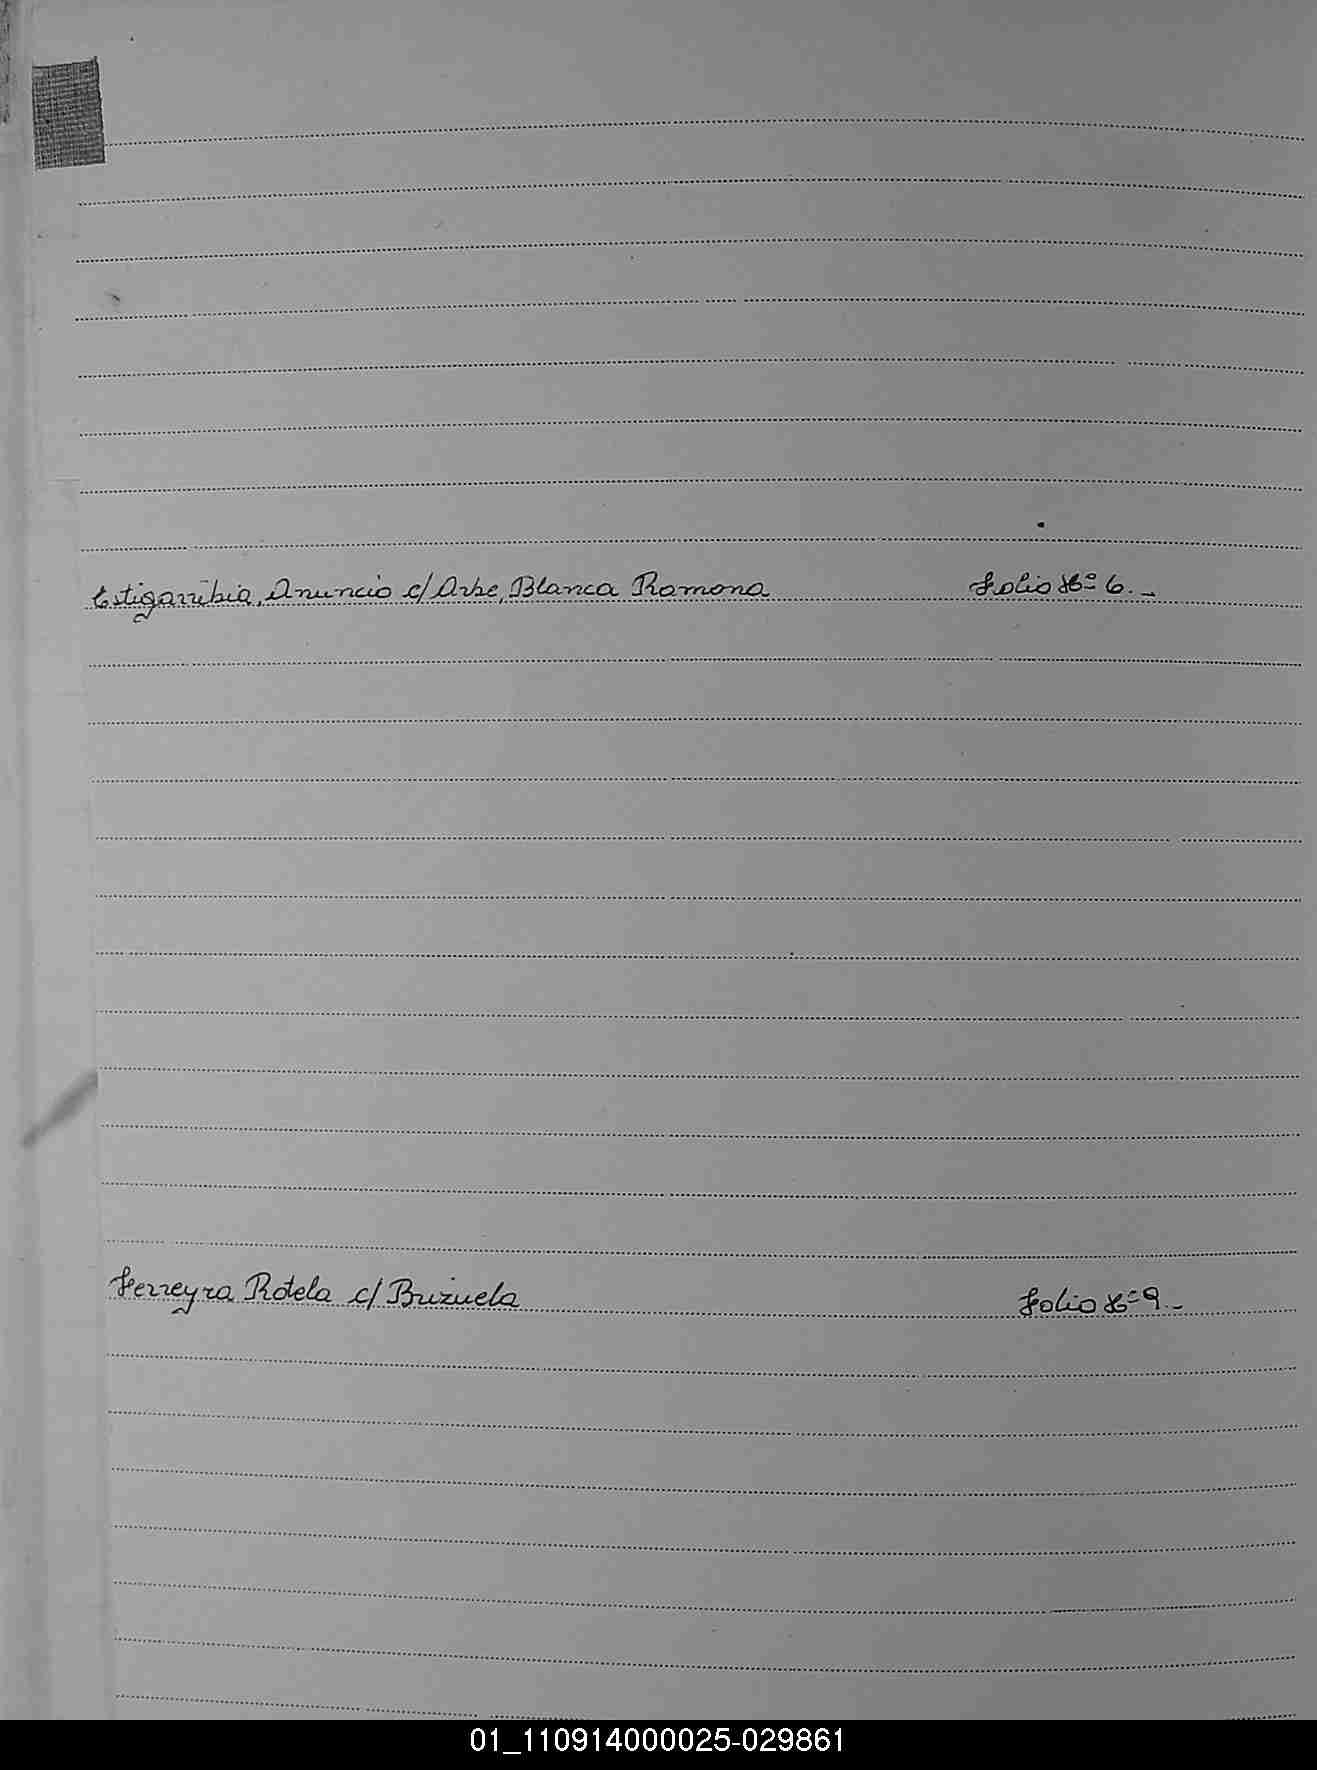 Estigarribia, Anuncio c/ Arbe, Blanca Ramona Folio Nº 6.-
Ferreyra Rotela c/ Brizuela Folio Nº 9.-
01_110914000025-029861